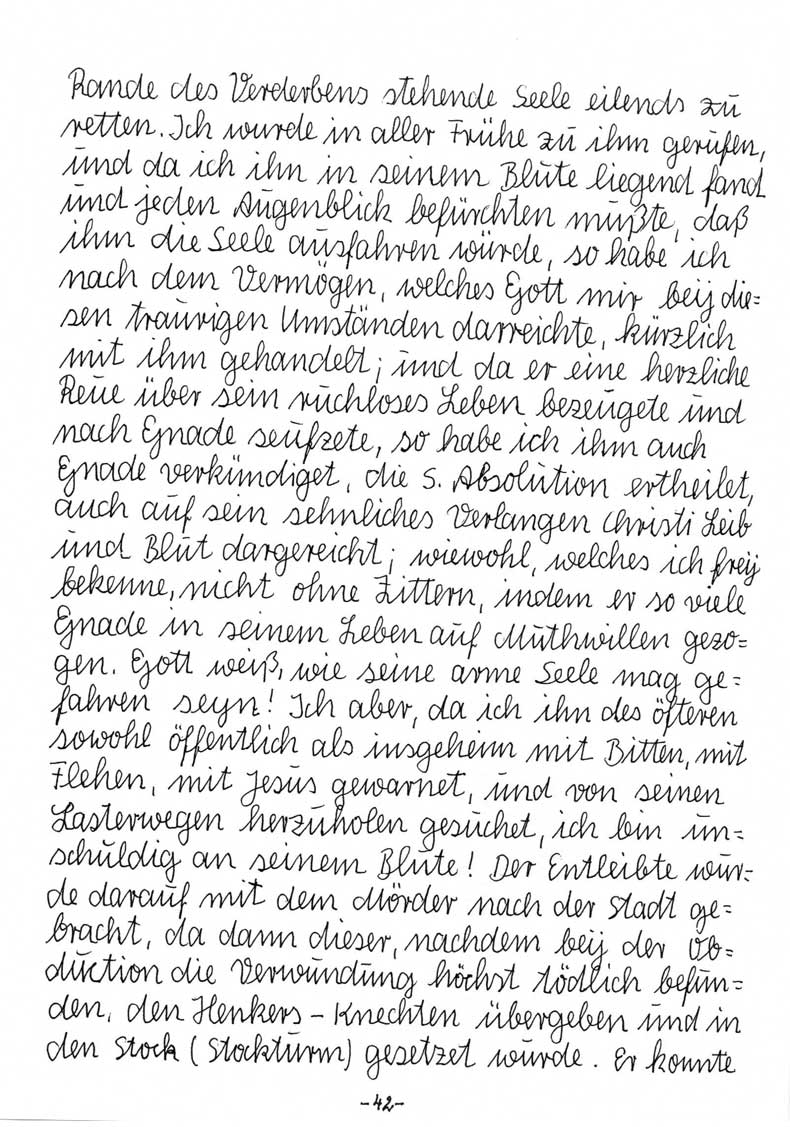 Rande des Verderbens stehende Seele eilends zu
retten. Ich wurde in aller Frühe zu ihm gerufen,
und da ich ihn in seinem Blute liegend fand
und jeden Augenblick befürchten mußte, daß
ihm die Seele ausfahren würde, so habe ich
nach dem Vermögen, welches Gott mir beij die=
sen traurigen Umständen darreichte, kürzlich
mit ihm gehandelt; und da er eine herzliche
Reue über sein ruchloses Leben bezeugete und
nach Gnade seufzete, so habe ich ihm auch
Gnade verkündiget, die S. Absolution ertheilet,
auch auf sein sehnliches Verlangen Christi Leib
und Blut dargereicht; wiewohl, welches ich freij
bekenne, nicht ohne Zittern, indem er so viele
Gnade in seinem Leben auf Muthwillen gezo=
gen. Gott weiß, wie seine arme Seele mag ge=
fahren seyn! Ich aber, da ich ihn des öfteren
sowohl öffentlich als insgeheim mit Bitten, mit
Flehen, mit Jesus gewarnet, und von seinen
Lasterwegen herzuholen gesuchet, ich bin un=
schuldig an seinem Blute! Der Entleibte wur=
de darauf mit dem Mörder nach der Stadt ge=
bracht, da dann dieser, nachdem beij der Ob=
duktion die Verwundung höchst tödlich befun=
den, den Henkers - Knechten übergeben und in
den Stock (Stockturm) gesetzet wurde. Er konnte
-42-